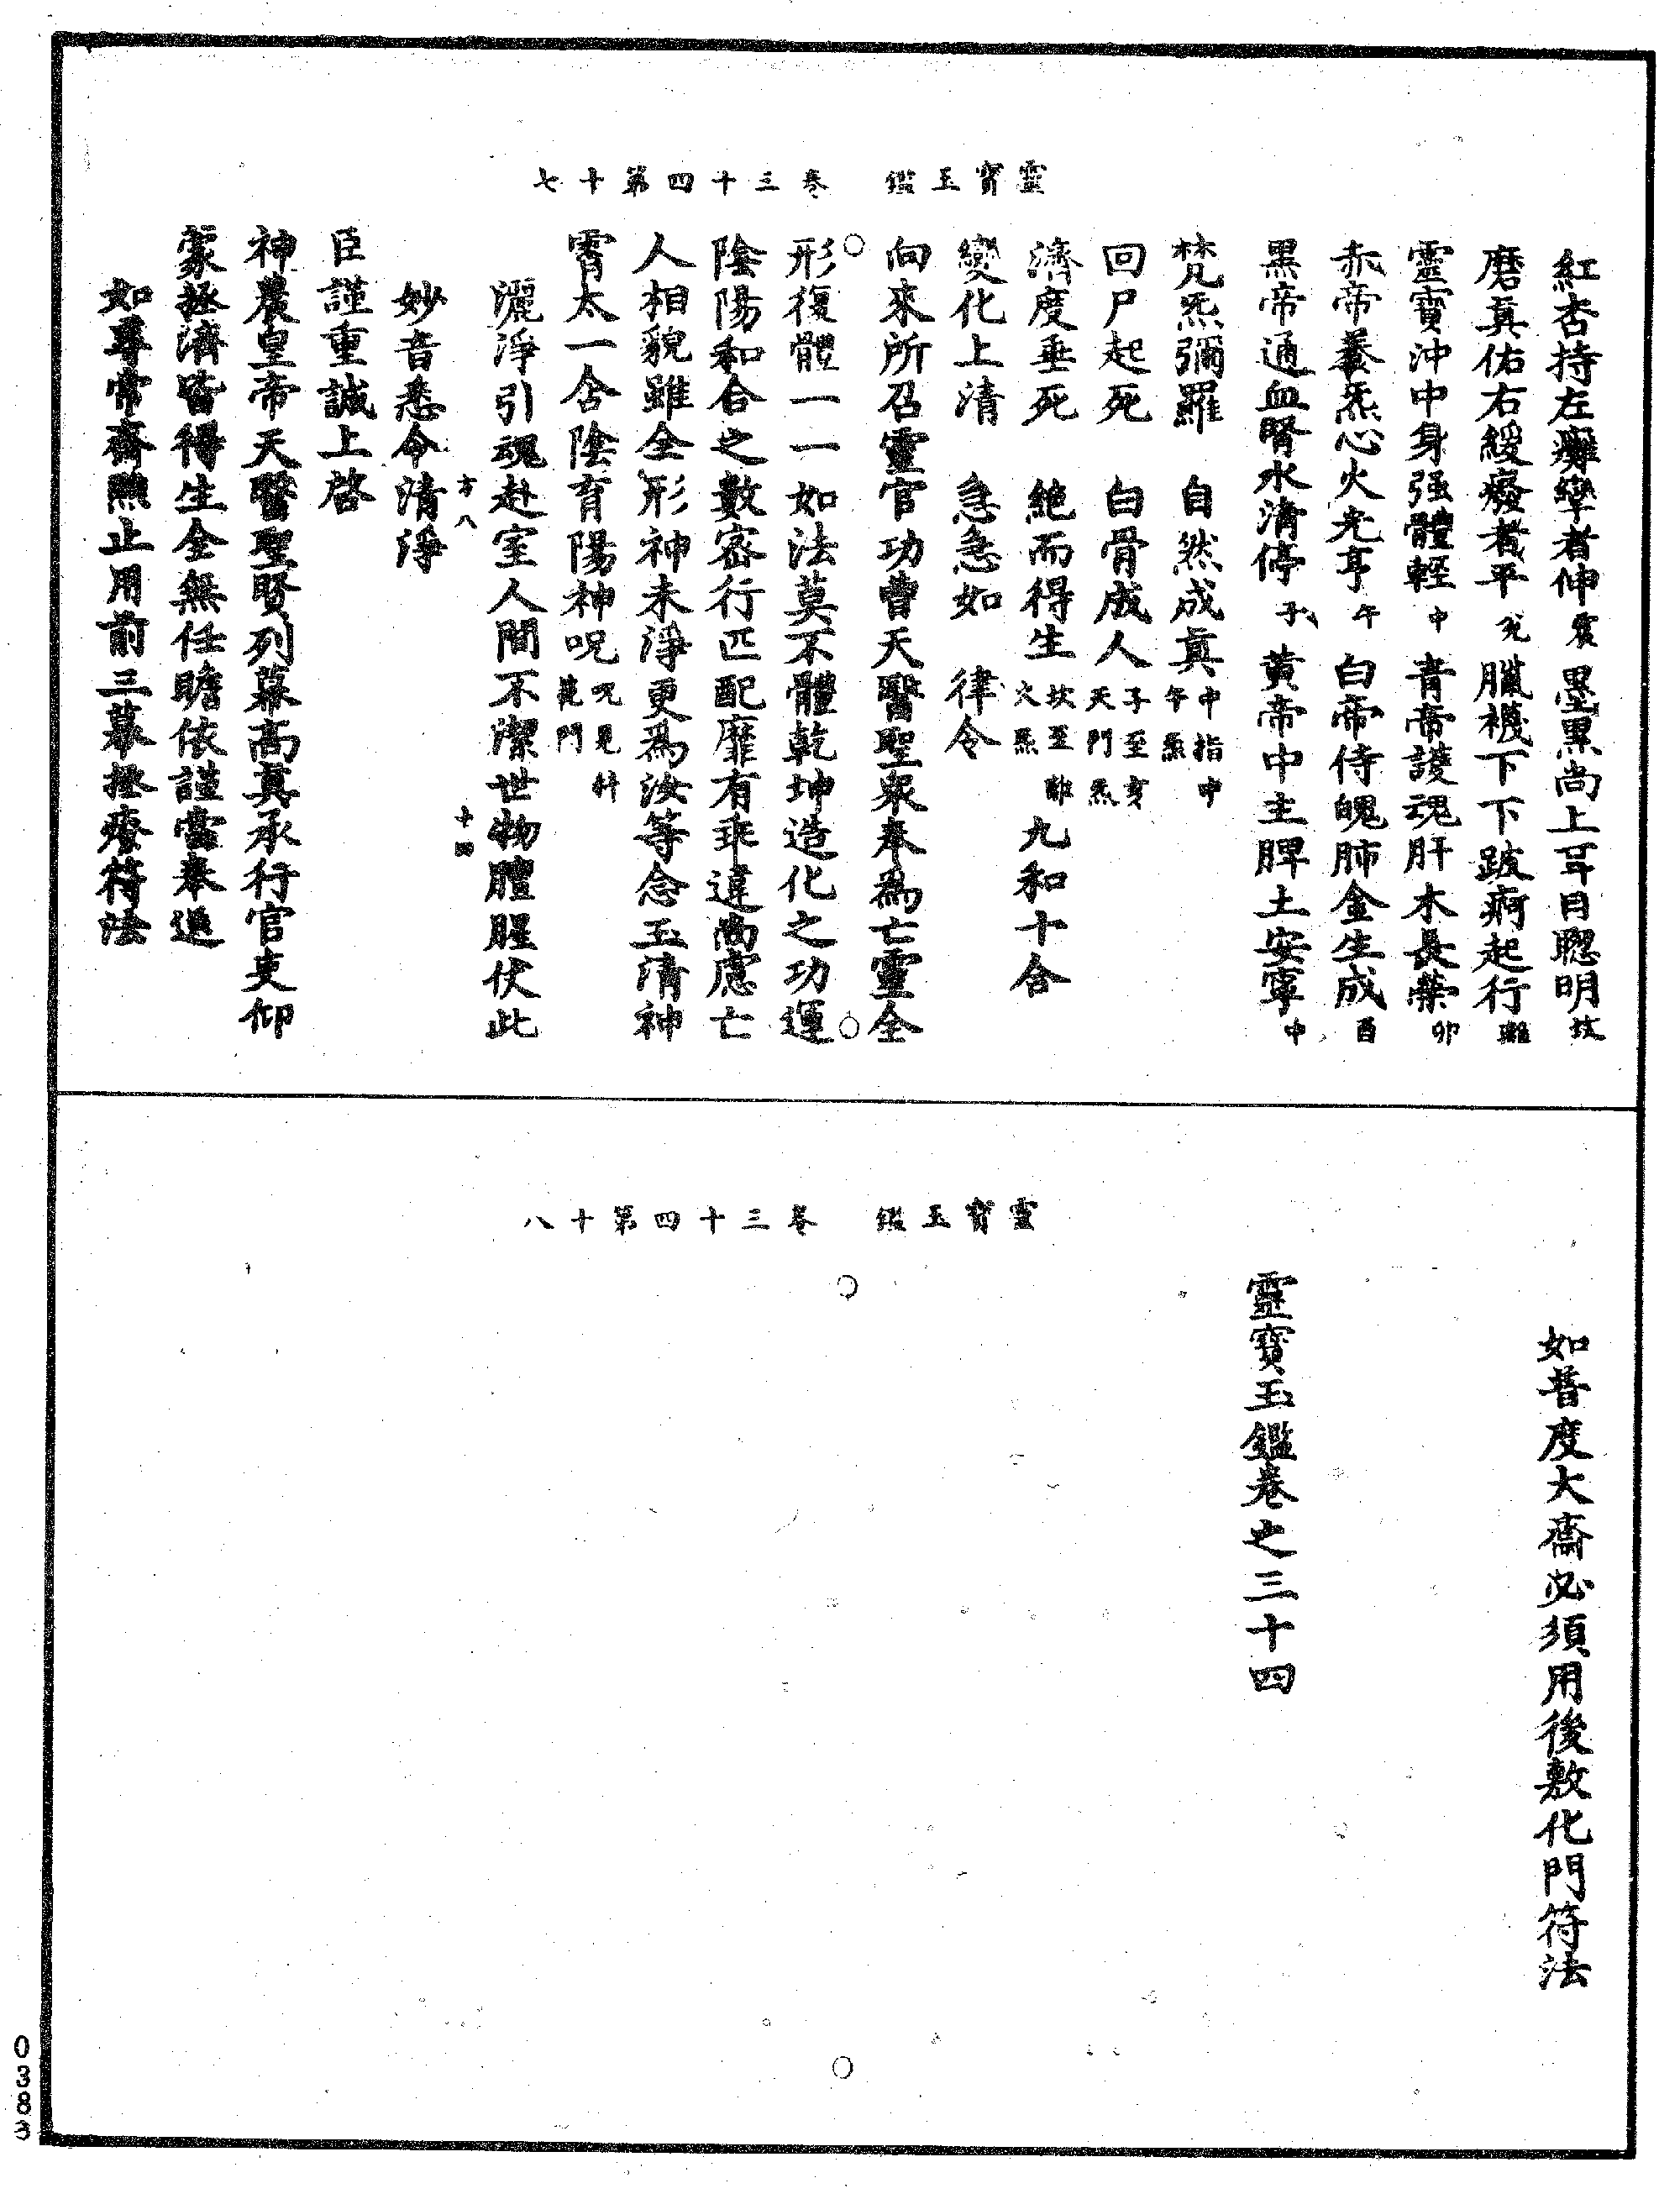 靈寶玉鑑　卷三十四第十七
紅杏持左癱攣者伸震墨黑尚上耳目聰明坎
磨真佑右緩癈者平兌臘襪下下跛痾起行離
靈寶沖中身强體輕中青帝護魂肝木長榮卯
赤帝養炁心火光亨午白帝侍魄肺金生成酉
黑帝通血腎水清停子黃帝中主脾土安寧中
梵炁彌羅　自然成真中指中午炁
回尸起死　白骨成人子至亥天門炁
濟度垂死　絕而得生坎至離火炁九和十合
變化上清　急急如　律令
向來所召靈官功曹天醫聖衆奉為亡靈全
形復體一一如法莫不體乾坤造化之功運
陰陽和合之數密行匹配靡有乖違尚慮亡
人相貌雖全形神未淨更爲汝等念玉清神
霄太一含陰育陽神呪呪見升龍門
灑淨引魂赴室人間不潔世物膻腥伏此
方八　十四
妙音悉令清淨
臣謹重誠上啓
神農皇帝天醫聖賢列幕高真承行官吏仰
蒙拯濟皆得生全無任瞻依謹當奉送
如尋常齋醮止用前三幕拯療符法
靈寶玉鑑　卷三十四第十八
如普度大齋必須用後敷化門符法
靈寶玉鑑卷之三十四
0383